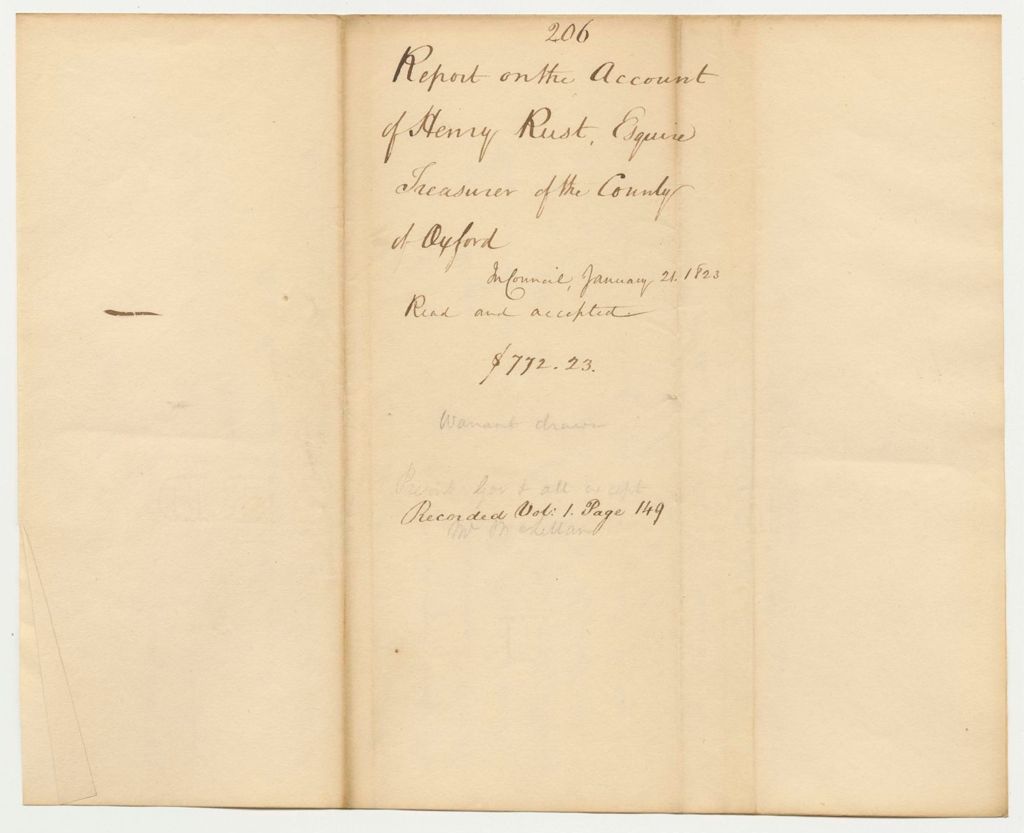 206
Report on the Account
of Henry Rust, Esquire
Treasurer of the County
of Oxford
In Council, January 21. 1823
Read and accepted
$772.23.
Warrant drawn
Gov & all except
Recorded Vol: 1. Page 149
Mr McLellan